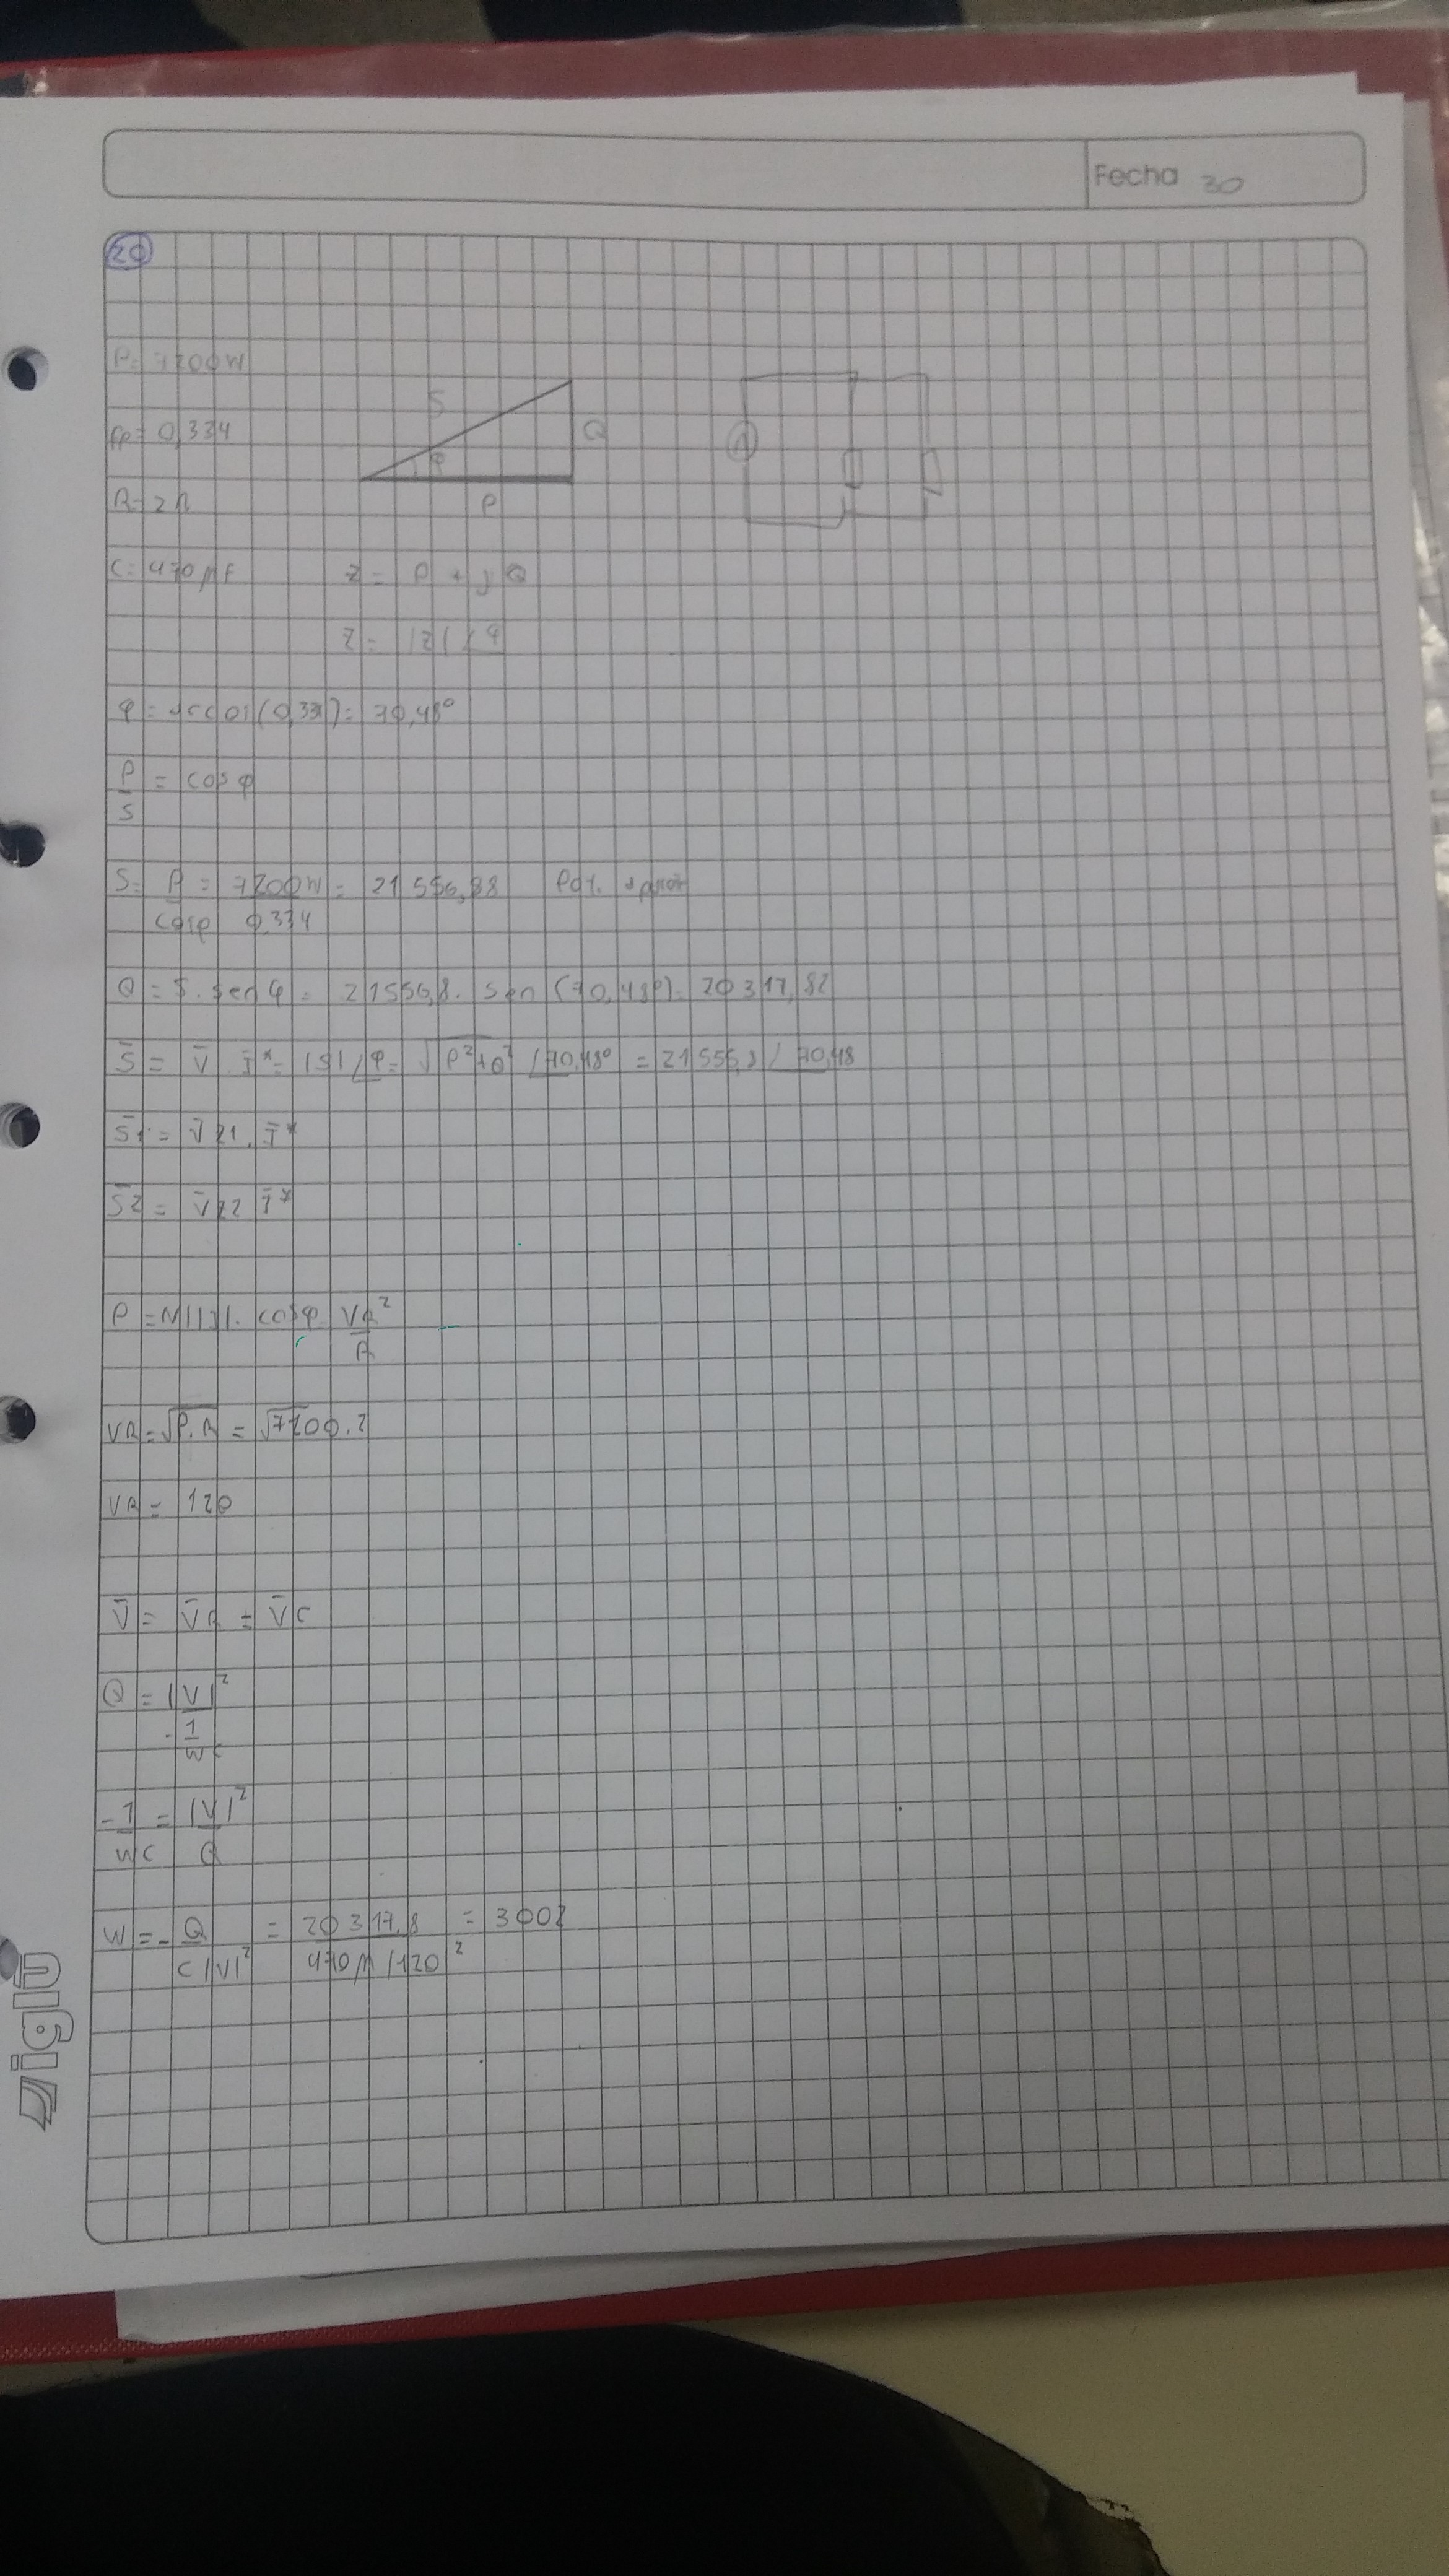 Fecha 30
20
P= 7200W
S
Q
φ
P
fp= 0,334
R= 2Ω
C= 470µF
Z = P + jQ
Z = |Z| ∠φ
φ = arccos(0,334)= 70,48°
P/S = cos φ
S= P/cosφ = 7200W/0,334 = 21556,88 Pot. apar
Q = S. sen φ = 21556,8. sen (70,48º)= 20317,82
S̄ = V̄ . Ī* = |S| ∠φ = √P²+Q² ∠70,48° = 21556,8 ∠70,48
S̄1 = V̄z1. Ī*
S̄2 = V̄z2 Ī*
P = |V||I|. cosφ = VR²/R
VR = √P.R = √7200.2
VR = 120
V̄ = V̄R = V̄C
Q = |V|²/-1/WC
-1/WC = |V|²/Q
W = - Q/C|V|² = 20317,8/470µ |120|² = 3002
iglú